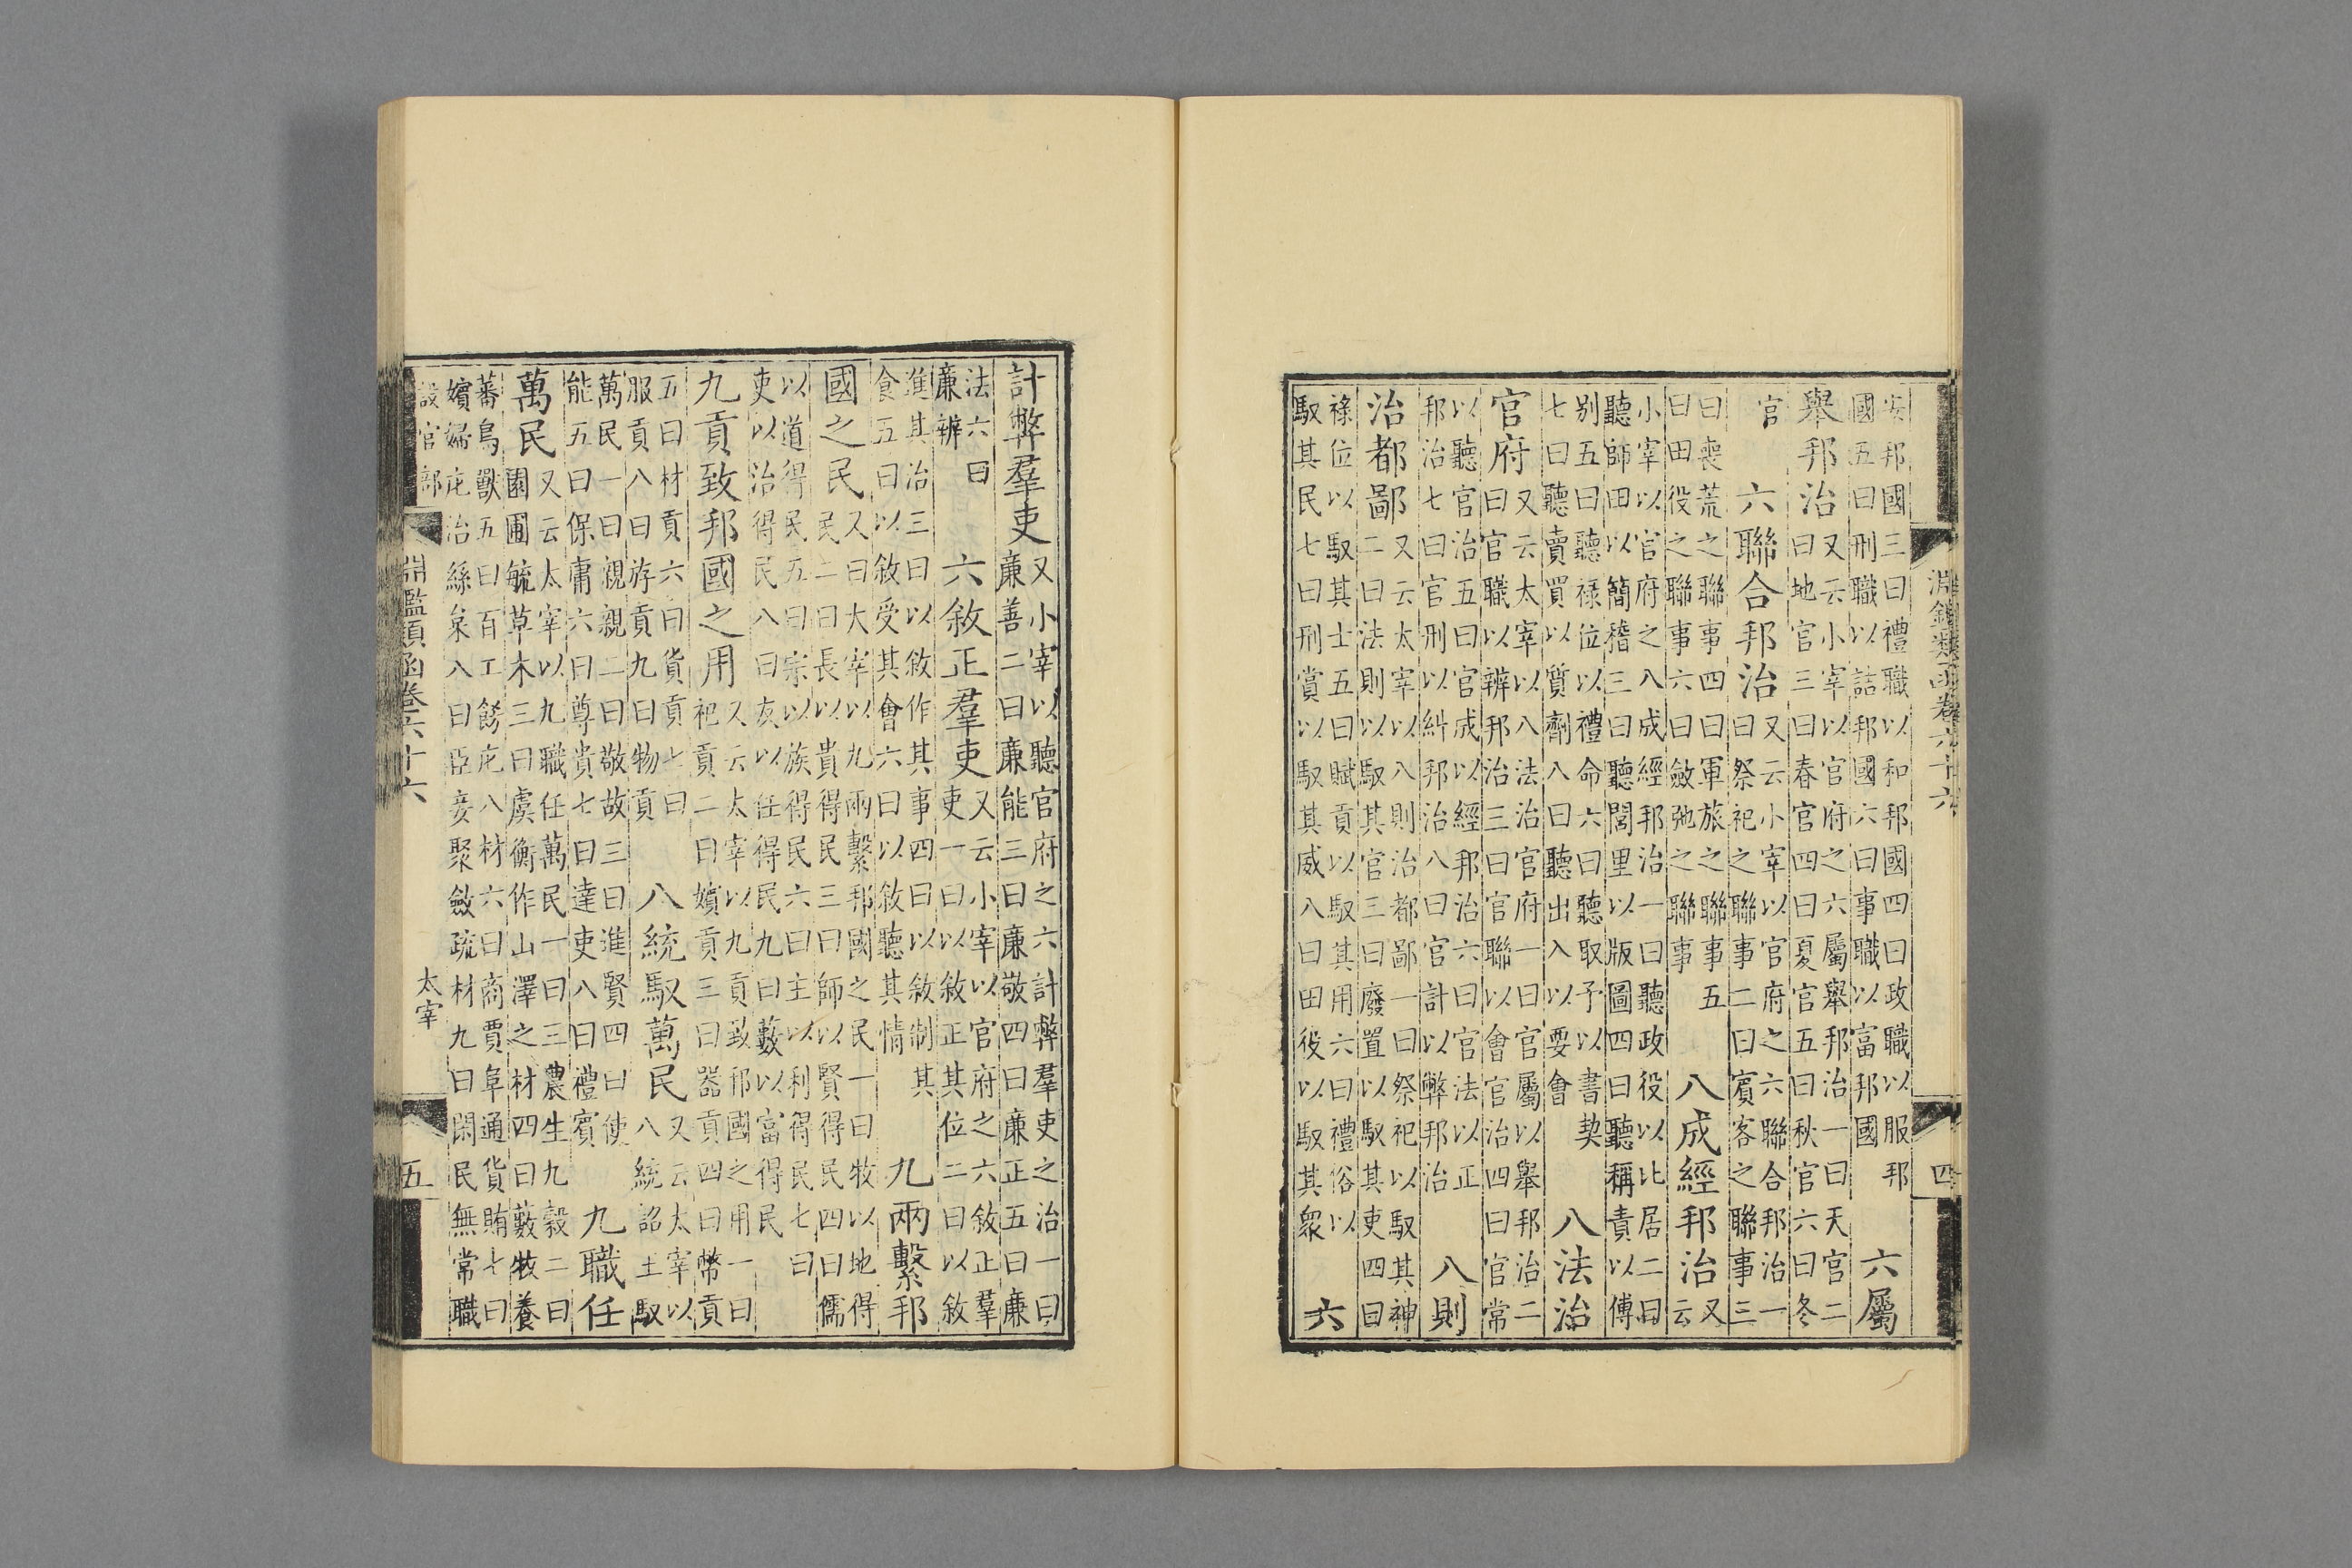 淵鑑類函卷六十六 四
安邦國三曰禮職以和邦國四曰政職以服邦
國五曰刑職以詰邦國六曰事職以富邦國
六屬
舉邦治
又云小宰以官府之六屬舉邦治一曰天官二
曰地官三曰春官四曰夏官五曰秋官六曰冬
官
六聯合邦治
又云小宰以官府之六聯合邦治一
曰祭祀之聯事二曰賓客之聯事三
曰喪荒之聯事四曰軍旅之聯事五
曰田役之聯事六曰斂弛之聯事
八成經邦治
又
云
小宰以官府之八成經邦治一曰聽政役以比居二曰
聽師田以簡稽三曰聽閭里以版圖四曰聽稱責以傅
别五曰聽禄位以禮命六曰聽取予以書契
七曰聽賣買以質劑八曰聽出入以要會
八法治
官府
又云太宰以八法治官府一曰官屬以舉邦治二
曰官職以辨邦治三曰官聯以會官治四曰官常
以聽官治五曰官成以經邦治六曰官法以正
邦治七曰官刑以糾邦治八曰官計以弊邦治
八則
治都鄙
又云太宰以八則治都鄙一曰祭祀以馭其神
二曰法則以馭其官三曰廢置以馭其吏四曰
禄位以馭其士五曰賦貢以馭其用六曰禮俗以
馭其民七曰刑賞以馭其威八曰田役以馭其衆
六
計弊羣吏
又小宰以聽官府之六計弊羣吏之治一曰
廉善二曰廉能三曰廉敬四曰廉正五曰廉
法六曰
廉辨
六敘正羣吏
又云小宰以官府之六敘正羣
吏一曰以敘正其位二曰以敘
進其治三曰以敘作其事四曰以敘制其
食五曰以敘受其會六曰以敘聽其情
九兩繫邦
國之民
又曰大宰以九兩繫邦國之民一曰牧以地得
民二曰長以貴得民三曰師以賢得民四曰儒
以道得民五曰宗以族得民六曰主以利得民七曰
吏以治得民八曰友以任得民九曰藪以富得民
九貢致邦國之用
又云太宰以九貢致邦國之用一曰
祀貢二曰嬪貢三曰器貢四曰幣貢
五曰材貢六曰貨貢七曰
服貢八曰斿貢九曰物貢
八統馭萬民
又云太宰以
八統詔王馭
萬民一曰親親二曰敬故三曰進賢四曰使
能五曰保庸六曰尊貴七曰達吏八曰禮賓
九職任
萬民
又云太宰以九職任萬民一曰三農生九穀二曰
園圃毓草木三曰虞衡作山澤之材四曰藪牧養
蕃鳥獸五曰百工餝庀八材六曰商賈阜通貨賄七曰
嬪婦庀治絲枲八曰臣妾聚斂疏材九曰閑民無常職
設官部
淵鑑類函卷六十六 太宰 五